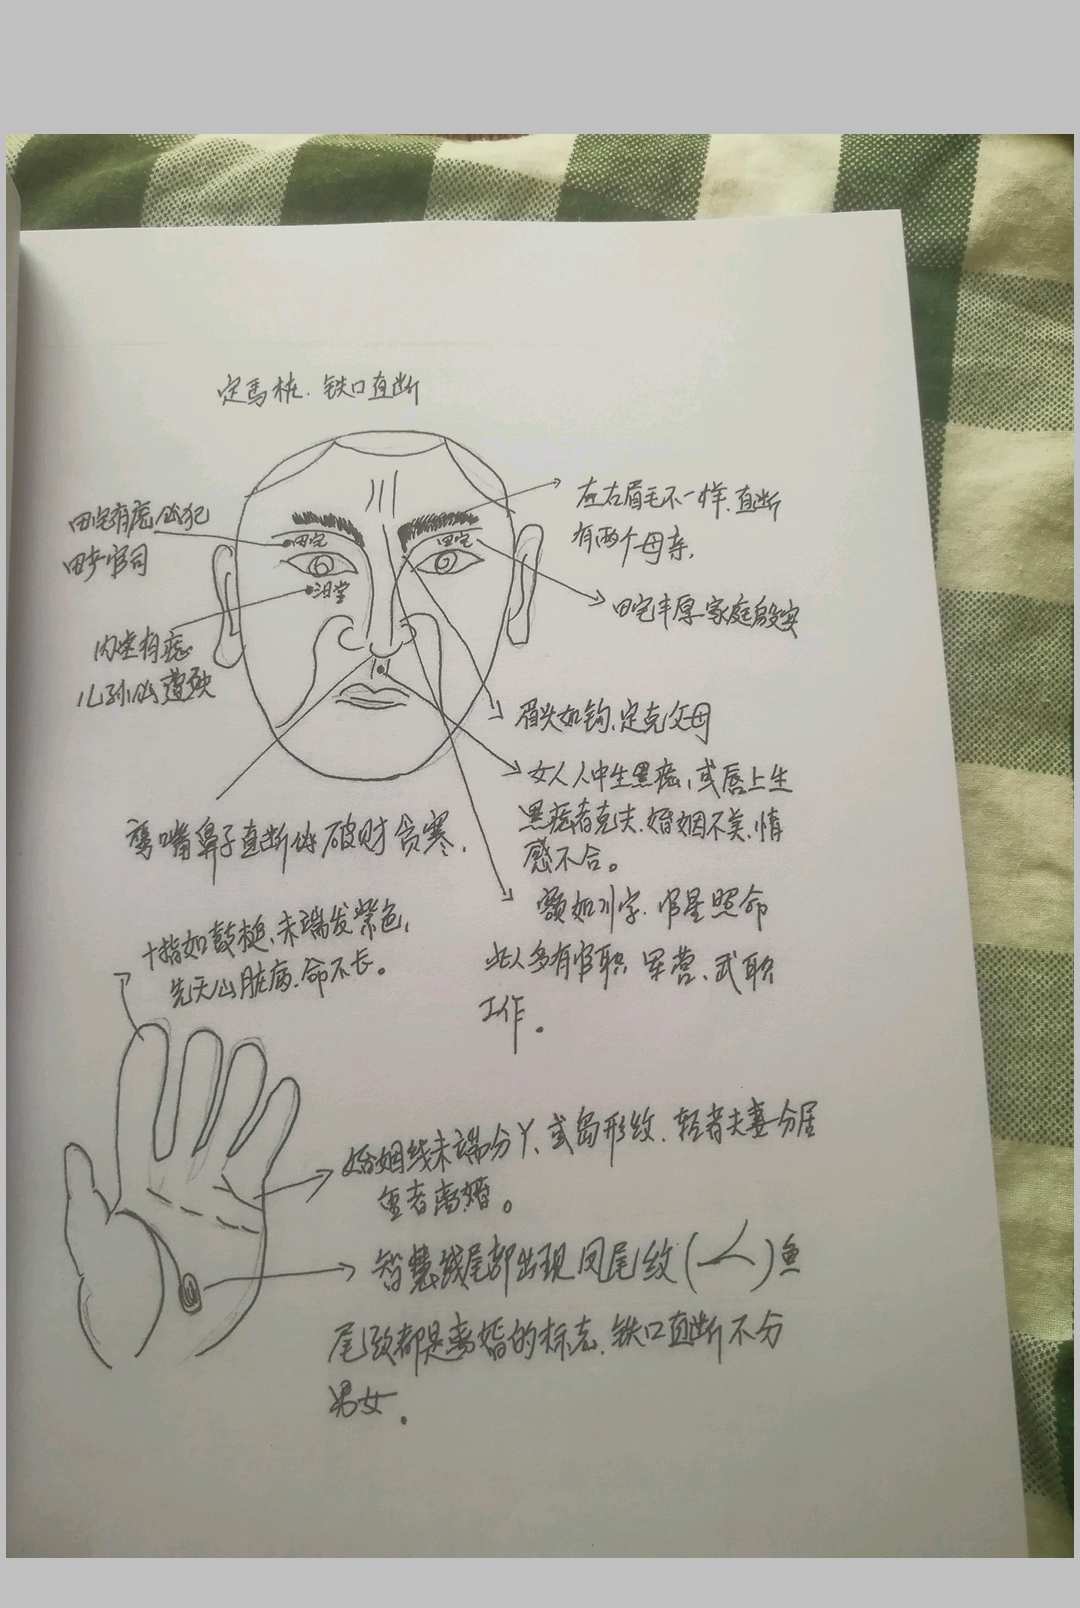 定马桩.铁口直断
田宅有痣必犯
田步官司
田宅
田宅
泪堂
左右眉毛不一样.直断
有两个母亲,
田宅丰厚家庭殷实
内堂有痣
儿孙必遭殃
眉头如钩、定克父母
女人人中生黑痣,或唇上生
黑痣者克夫.婚姻不美.情
感不合。
鹰嘴鼻子直断你破财贫寒.
额如川字.官星照命
此人多有官职.军营、武职
工作.
十指如鼓槌、末端发紫色,
先天心脏病.命不长。
婚姻线末端分丫、或岛形纹、轻者夫妻分居
重者离婚。
智慧线尾部出现凤尾纹(人)鱼
尾纹都是离婚的标志.铁口直断不分
男女.